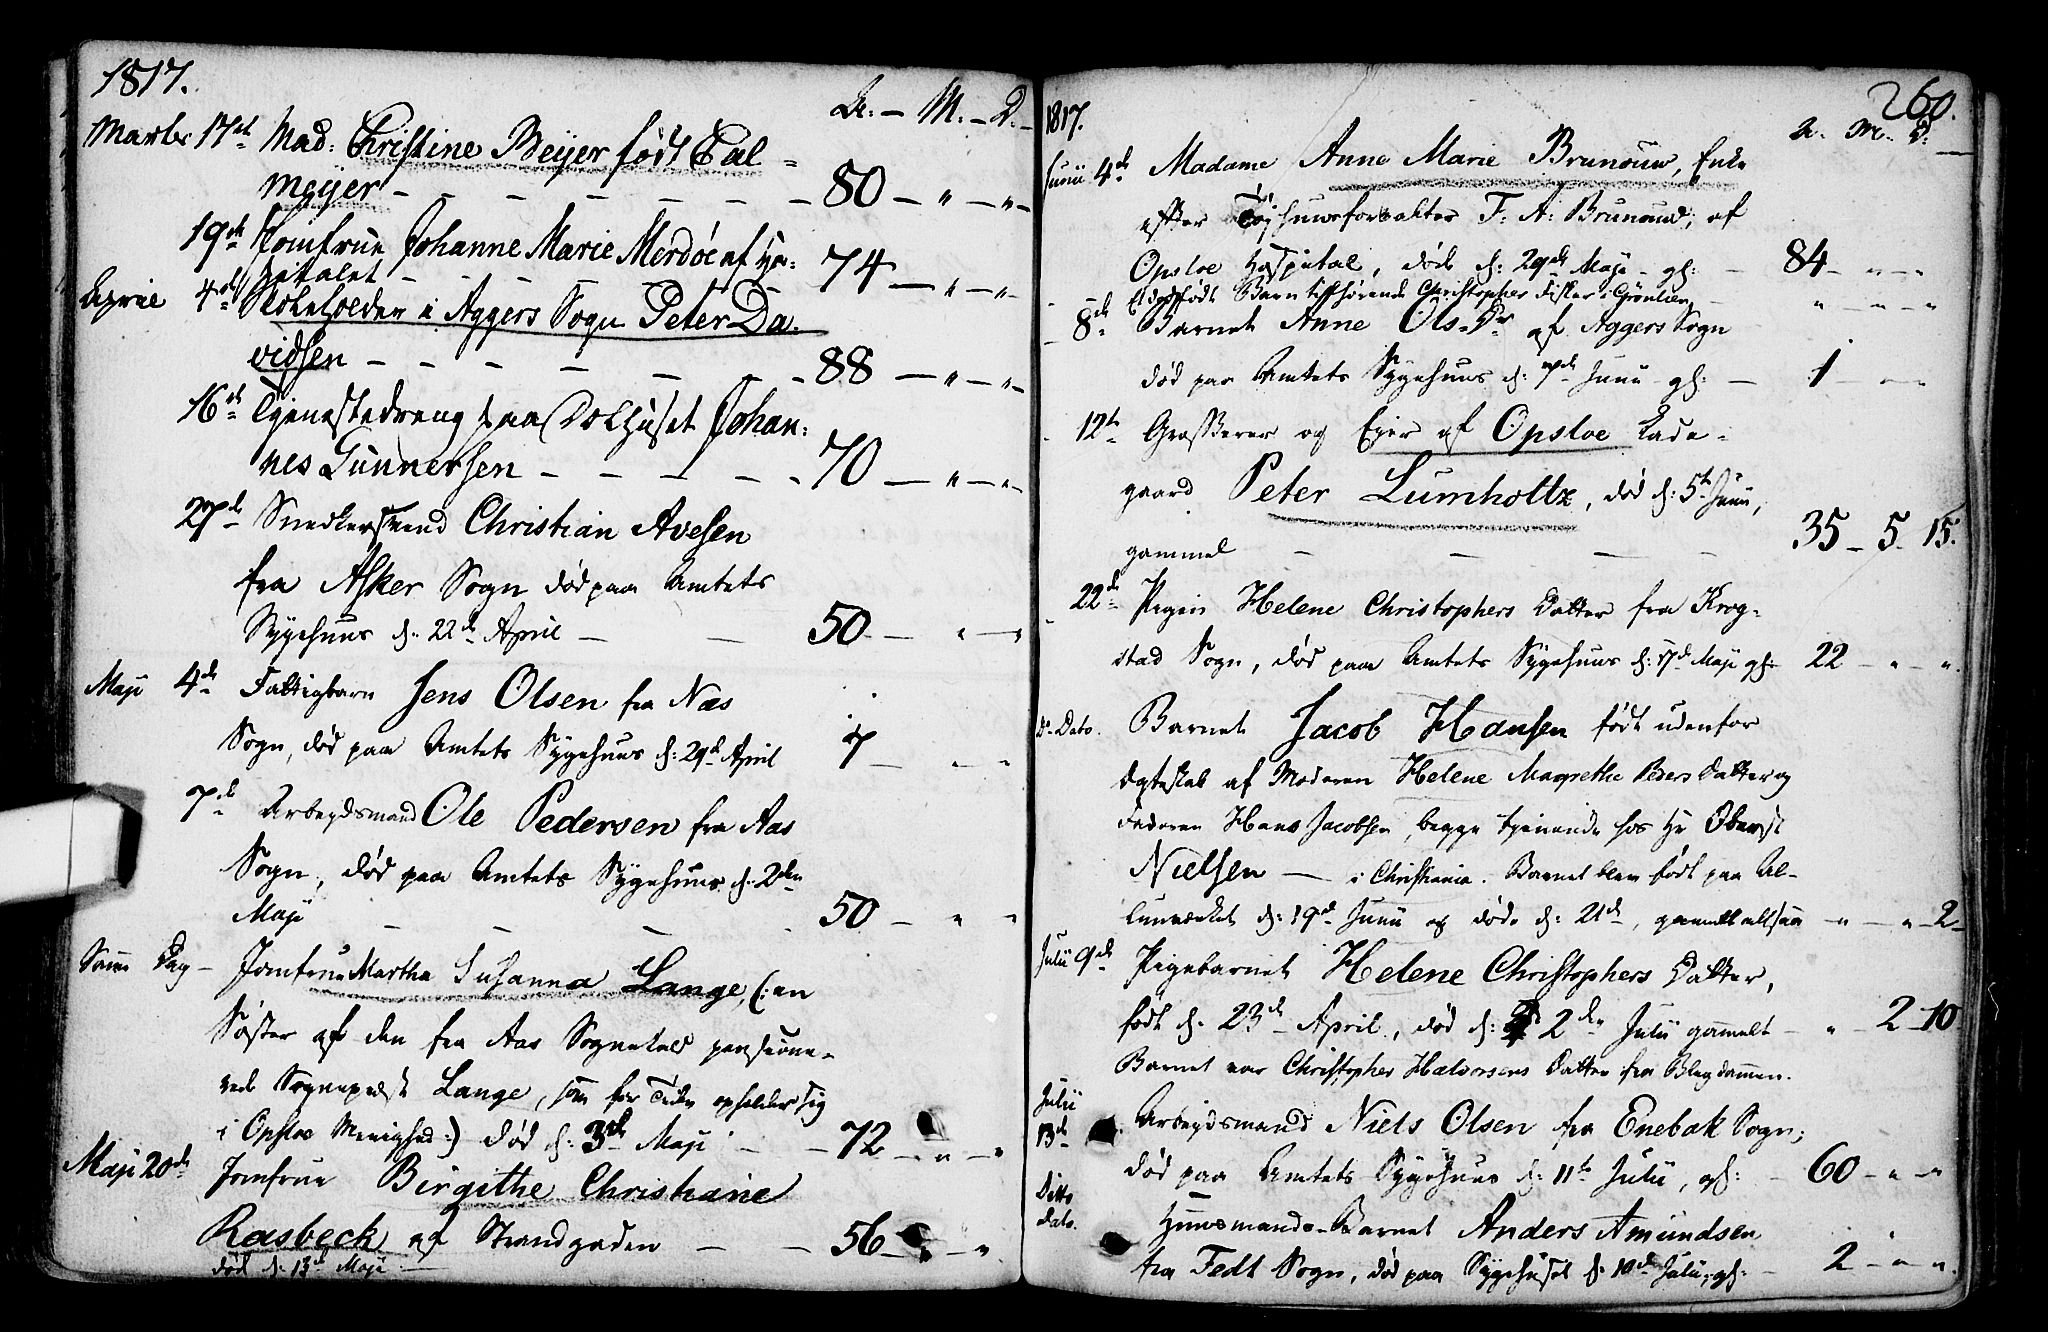 1817.
A: — M. — D. —
Marts 17de Mad: Christine Beijer født Cal-
meijer — — — — — 80 — " — " —
19de Jomfrue Johanne Marie Merdøe af Ho-
spitalet — — — 74 — " — " —
Aprile 4de Skoleholder i Aggers Sogn Peter Da-
vidsen — — — — — 88 — " — " —
16de Tjenestedreng paa Dolhuset Johan-
nes Gunnersen — — — — 70 — " — " —
27de Snedkersvend Christian Avesen
fra Asker Sogn død paa Amtets
Sygehuus d: 22de April — — 50 — " — "
Maji 4de Fattigbarn Jens Olsen fra Næs
Sogn, død paa Amtets Sygehuus d: 29de April 7 — " — "
7de Arbeydsmand Ole Pedersen fra Aas
Sogn, død paa Amtets Sygehuus d. 2den
Maji — — — 50 — " — "
Samme Dag — Jomfrue Martha Susanna Lange, (: en
Søster af den fra Aas Sognekald pensione-
rede Sognepræst Lange, som for Tiden opholder sig
i Opsloe Menighed :) død d: 3de Maji — — 72 — " — "
Maji 20de Jomfrue Birgithe Christiane
Rasbeck af Strandgaden — — 56 — " — "
død d: 13de Maji —
260.
1817.
A. M. D. —
Junii 4de Madame Anne Marie Brunouw, Enke
efter Tøjhuusforvalter F: A: Brunouw, af
Opsloe Hospital, døde d: 29de Maji — gl: — 84 — " — "
Et dødfødt Barn tilhørende Christopher Fisker i Grønlien — " — " — "
8de Barnet Anne Ols Dr af Aggers Sogn
død paa Amtets Sygehuus d: 7de Junii gl: — 1 — " — "
12te Grosserer og Ejer af Opsloe Lade-
gaard Peter Lumholtz, død d: 5te Junii,
gammel — — — — 35 — 5 — 15.
22de Pigen Helene Christophers Datter fra Krog-
stad Sogn, død paa Amtets Sygehuus d: 17de Maji gl: 22 — " — "
Do Dato. Barnet Jacob Hansen født udenfor
Ægteskab af Moderen Helene Magrethe Peders Datter og
Faderen Hans Jacobsen, begge tjenende hos Hr Oberst
Nielsen — i Christiania. Barnet blev født paa Al-
lunværket d: 19de Junii og døde d: 21de, gammelt altsaa — " — " — 2 —
Julii 9de Pigebarnet Helene Christophers Datter,
født d. 23de April, død d: 2den Julii gamelt — " — 2 — 10
Barnet var Christopher Halvorsens Datter fra Blegdammen.
Julii
13de Arbeydsmand Niels Olsen fra Enebak Sogn;
død paa Amtets Sygehuus d: 11te Julii, gl: — 60 — " — "
Ditto
Dato. Huusmands-Barnet Anders Amundsen
fra Fedt Sogn, død paa Sygehuset d: 10de Julii, gl: — 2 — " — "